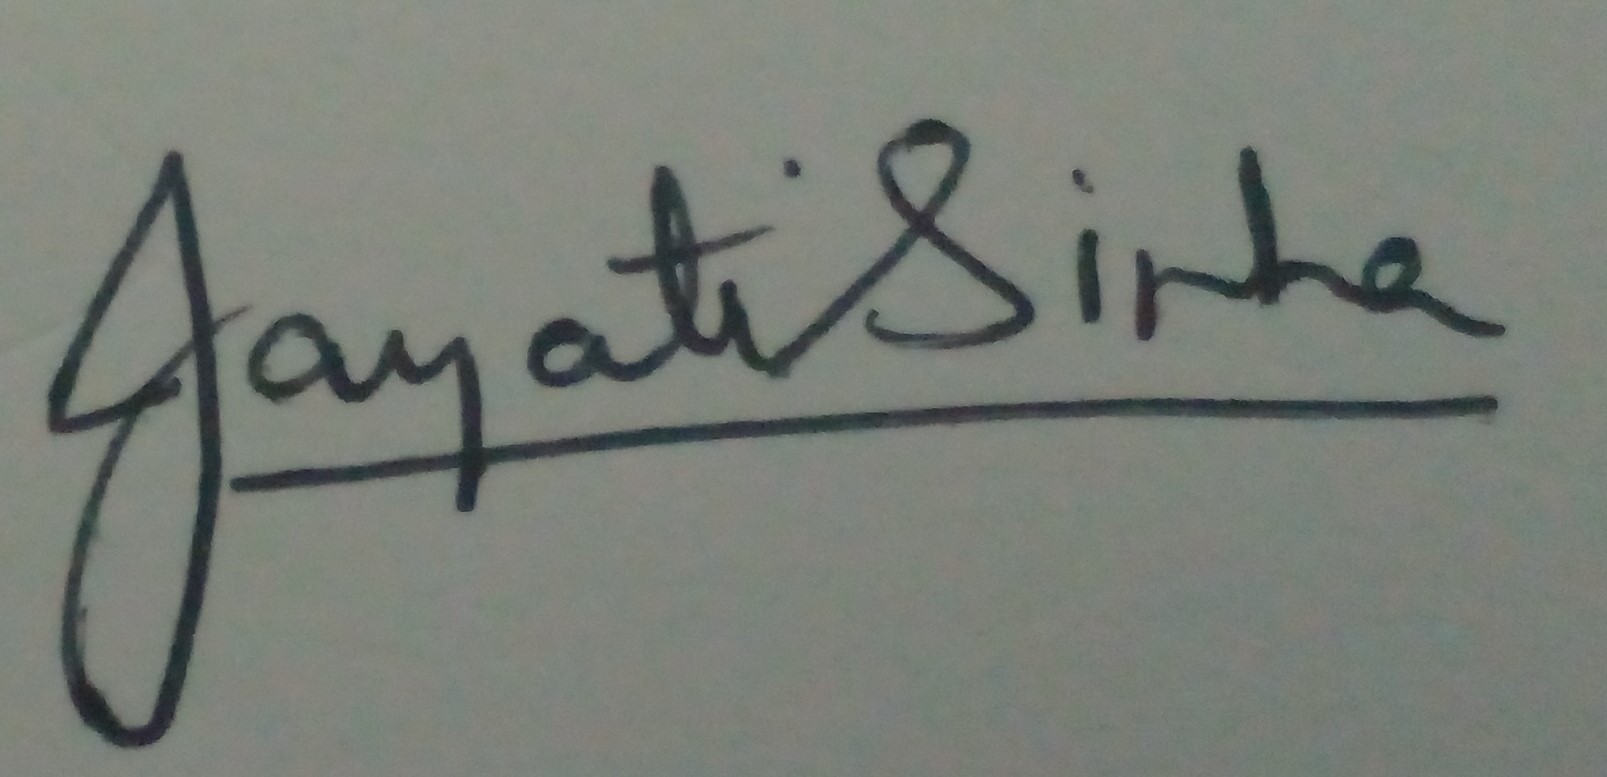 Jayati Sinha